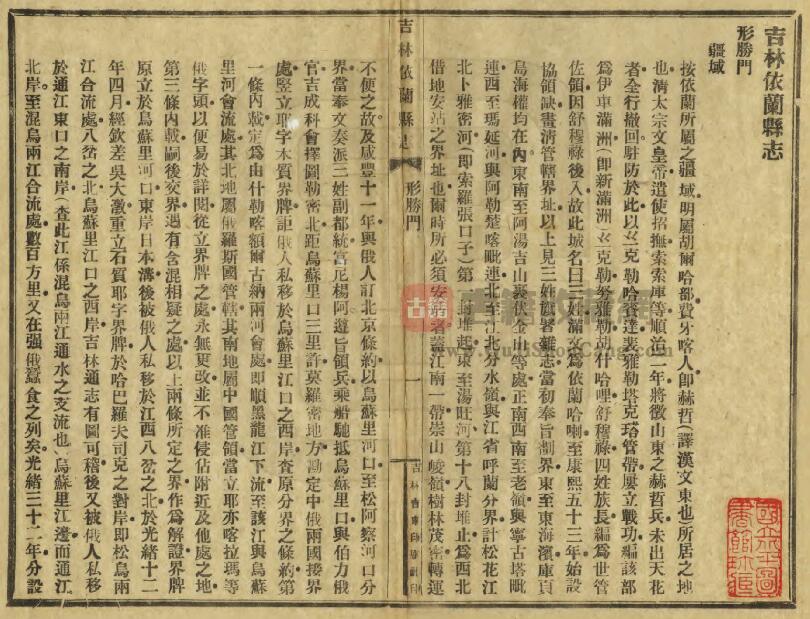 吉林依蘭縣志
形勝門
疆域
按依蘭所屬之疆域明屬胡爾哈部費牙喀人即赫哲（譯漢文東也）所居之地
也清太宗文皇帝遣使招撫索索庫等順治二年將徵山東之赫哲兵未出天花
者全行撤回駐防於此以
克勒哈賚達裴雅勒塔克珞管帶屢立戰功編該部
為伊車滿洲（即新滿洲）
克勒努雅勒胡什哈哩舒穆祿四姓族長編為世管
佐領因舒穆祿後入故此城名曰三姓滿文為依蘭哈喇至康熙五十三年始設
協領缺畫清管轄界址以上見三姓旗署雜志當初奉旨劃界東至東海濱庫頁
島海權均在內東南至阿湯吉山裊伏金山等處正南西南至老嶺與寧古塔毗
連西至瑪延河與阿勒楚喀毗連北至江北分水嶺與江省呼蘭分界計松花江
北卜雅密河（即索羅張口子）第一封堆起東至湯旺河第十八封堆止為西北
借地安站之界址也爾時所必須安站者蓋江南一帶崇山峻嶺樹林茂密轉運
吉林依蘭縣志
形勝門
一
不便之故及咸豐十一年與俄人訂北京條約以烏蘇里河口至松阿察河口分
界當奉文奏派三姓副都統富尼楊阿遵旨領兵乘船馳抵烏蘇里口與伯力俄
官吉成科會擇圖勒密北距烏蘇里口三里許莫羅密地方勘定中俄兩國接界
處竪立耶字木質界牌詎俄人私移於烏蘇里江口之西岸查原分界之條約第
一條內載定為由什勒喀額爾古納兩河會處即順黑龍江下流至該江與烏蘇
里河會流處其北地屬俄羅斯國管轄其南地屬中國管領當立耶亦喀拉瑪等
俄字頭以便易於詳閱從立界牌之處永無更改並不准侵佔附近及他處之地
第三條內載嗣後交界遇有含混相疑之處以上兩條所定之界作為解證界牌
原立於烏蘇里河口東岸日本溝後被俄人私移於江西八岔之北於光緒十二
年四月經欽差吳大澂重立石質耶字界牌於哈巴羅夫司克之對岸即松烏兩
江合流處八岔之北烏蘇里江口之西岸吉林通志有圖可稽後又被俄人私移
於通江東口之南岸（查此江係混烏兩江通水之支流也）烏蘇里江邊而通江
北岸至混烏兩江合流處數百方里又在强俄蠶食之列矣光緒三十二年分設